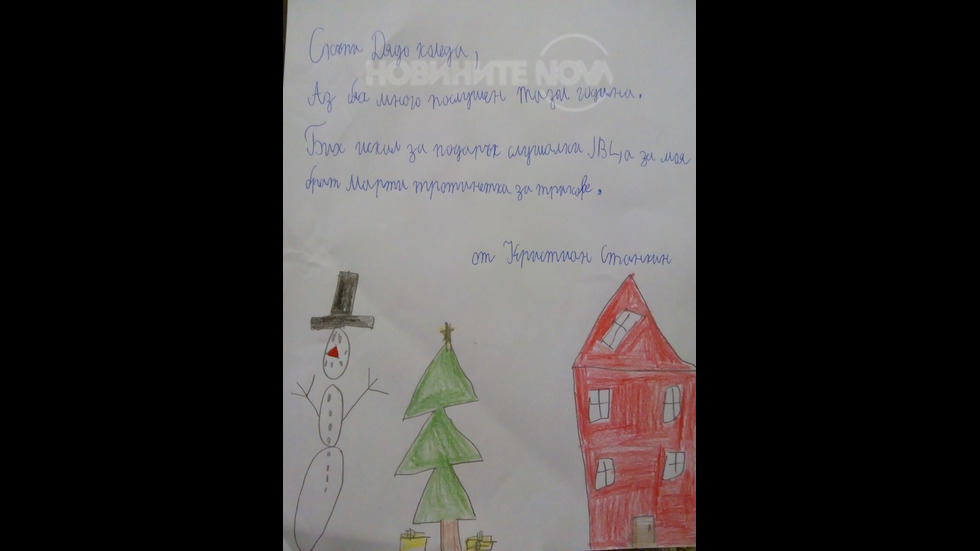 Скъпи Дядо коледа,
НОВИНИТЕ NOVA
Аз бях много послушен тази година.
Бих искил за подарък слушалки JBL, а за моя
брат Марти тротинетка за трикове.
от Кристиан Станкин